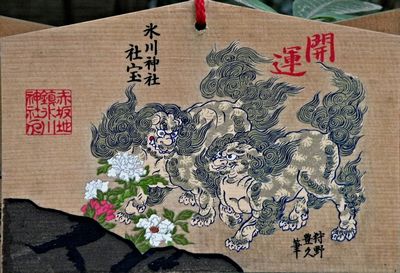 開運
氷川神社
社宝
赤坂地
鎮氷川
神社印
狩野
豊久
筆